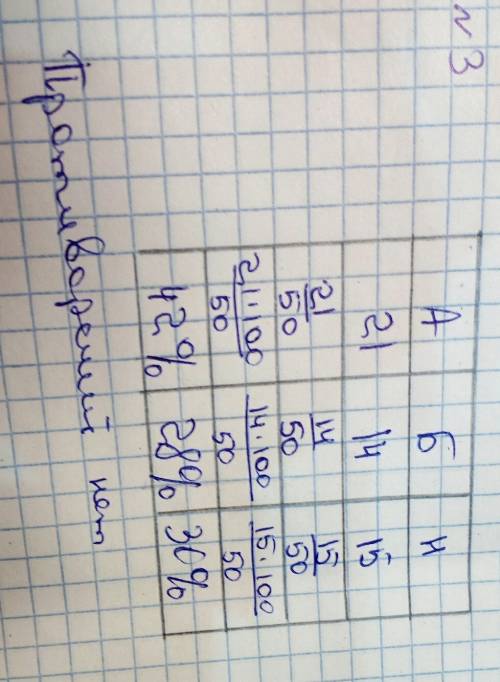 №3
А Б Н
21 14 15
21/50 14/50 15/50
21·100/50 14·100/50 15·100/50
42% 28% 30%
Противоречий нет